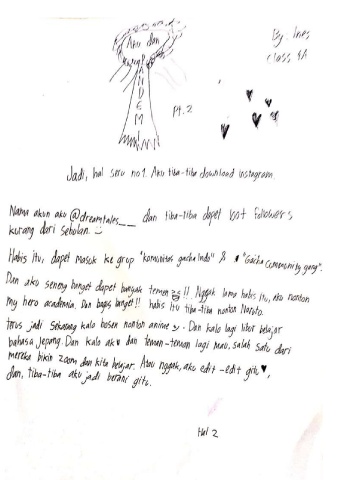 Aku dan
PANDEMI
By. Ines
Class 4A
pt. 2
Jadi, hal seru no 1. Aku tiba-tiba download instagram
Nama akun aku @dreamtales___ dan tiba-tiba dapet 100+ followers
kurang dari sebulan.
Habis itu, dapet masuk ke grup "komunitas gacha Indo" & "Gacha community gang".
Dan aku seneng banget dapet banyak temen !! Nggak lama habis itu, aku nonton
my hero academia. Dan bagus banget!! habis itu tiba-tiba nonton Naruto.
Terus jadi sekarang kalo bosen nonton anime. Dan kalo lagi libur belajar
bahasa Jepang. Dan kalo aku dan teman-teman lagi mau, salah satu dari
mereka bikin zoom dan kita belajar. Atau nggak, aku edit-edit gitu ♥,
dan, tiba-tiba aku jadi berani gitu.
Hal 2